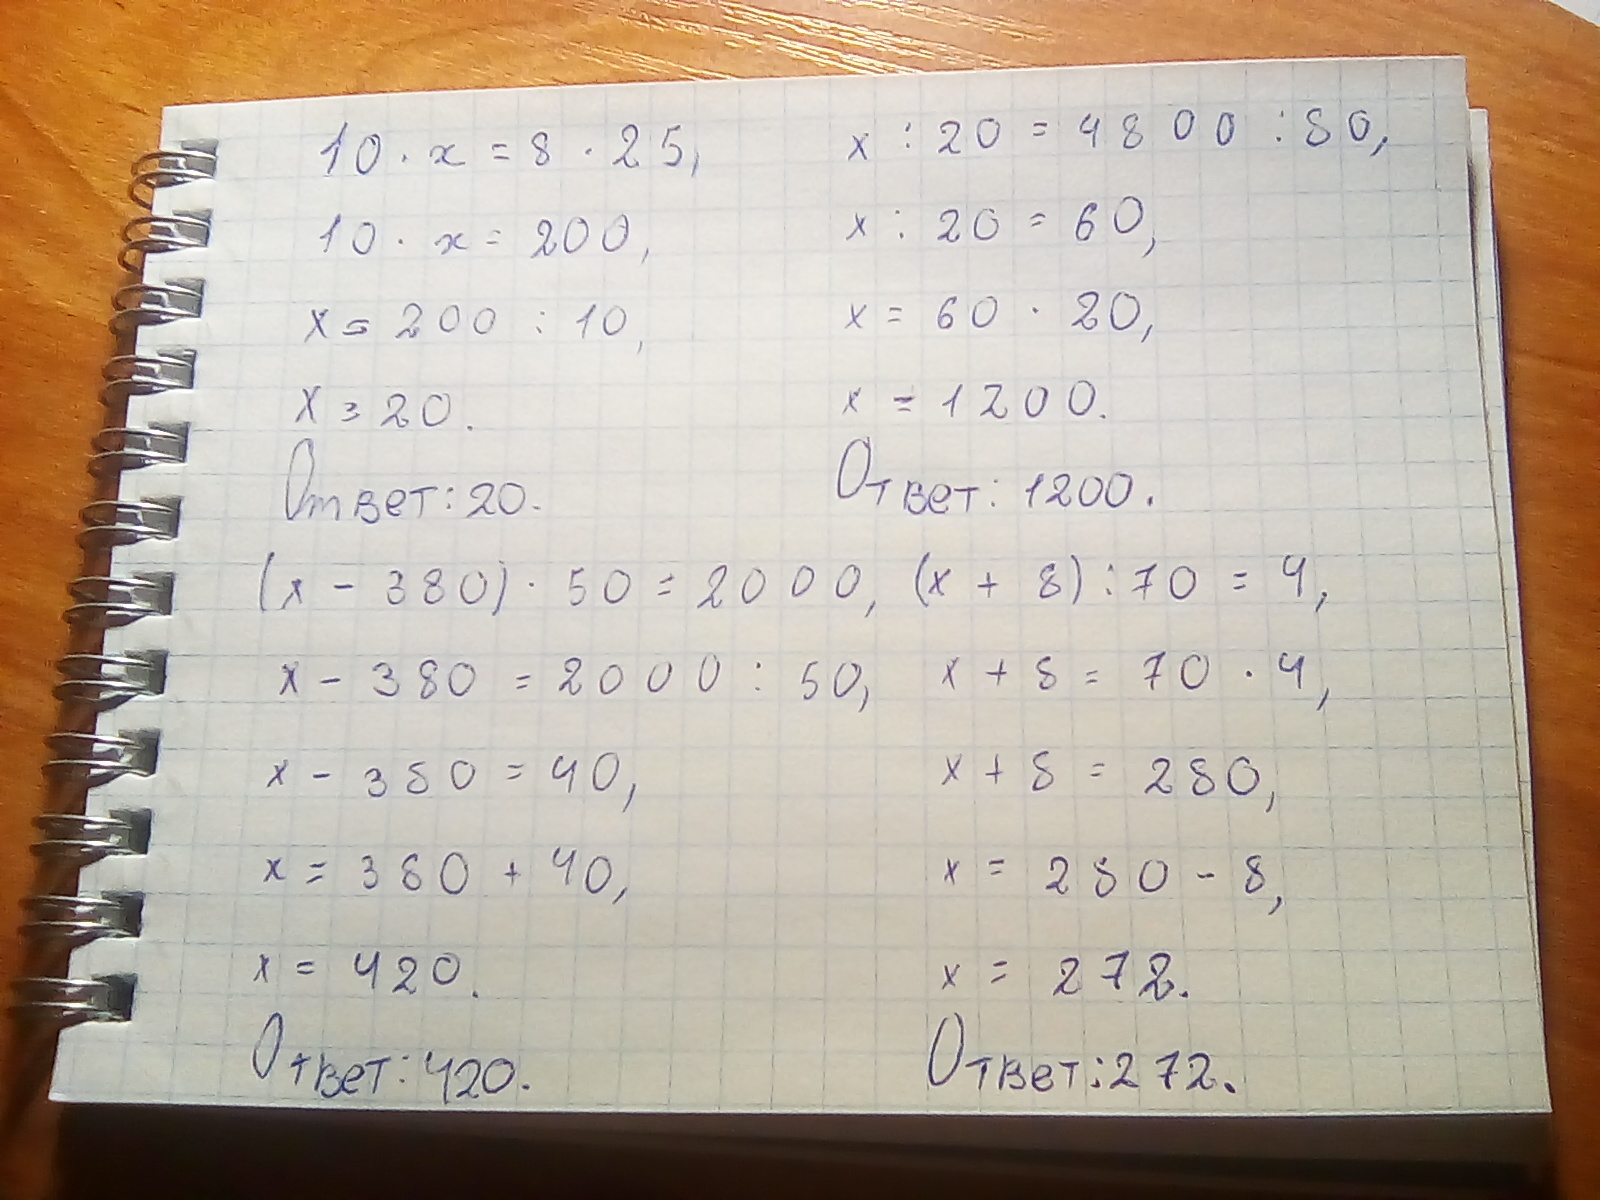 10 · x = 8 · 25,
10 · x = 200,
x = 200 : 10,
x = 20.
Ответ: 20.
x : 20 = 4800 : 80,
x : 20 = 60,
x = 60 · 20,
x = 1200.
Ответ: 1200.
(x - 380) · 50 = 2000,
x - 380 = 2000 : 50,
x - 380 = 40,
x = 380 + 40,
x = 420.
Ответ: 420.
(x + 8) : 70 = 4,
x + 8 = 70 · 4,
x + 8 = 280,
x = 280 - 8,
x = 272.
Ответ: 272.